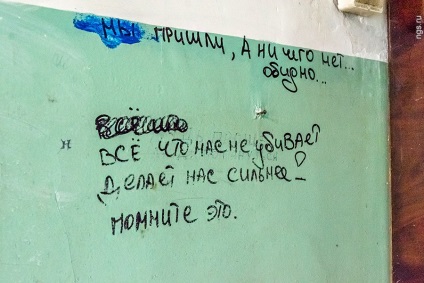 мы пришли, А ничего нет...
обидно...
н
ВСЁ что нас не убивает
Делает нас сильнее!
помните это.
ngs.ru